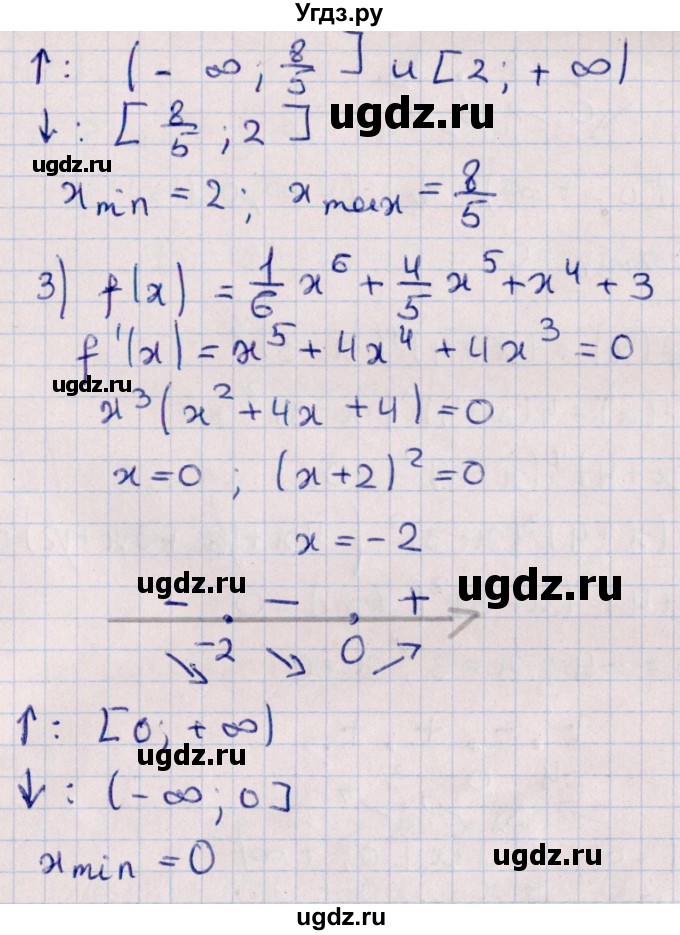 Угдз.ру
↑: (-∞; 8/5] и [2; +∞)
↓: [8/5; 2]
ugdz.ru
ugdz.ru
x min = 2; x max = 8/5
3) f(x) = 1/6 x⁶ + 4/5 x⁵ + x⁴ + 3
f'(x) = x⁵ + 4x⁴ + 4x³ = 0
ugdz.ru
ugdz.ru
x³(x² + 4x + 4) = 0
x = 0; (x + 2)² = 0
x = -2
ugdz.ru
ugdz.ru
- - +
-2 0
↘ ↘ ↗
↑: [0; +∞)
ugdz.ru
↓: (-∞; 0]
x min = 0
ugdz.ru
ugdz.ru